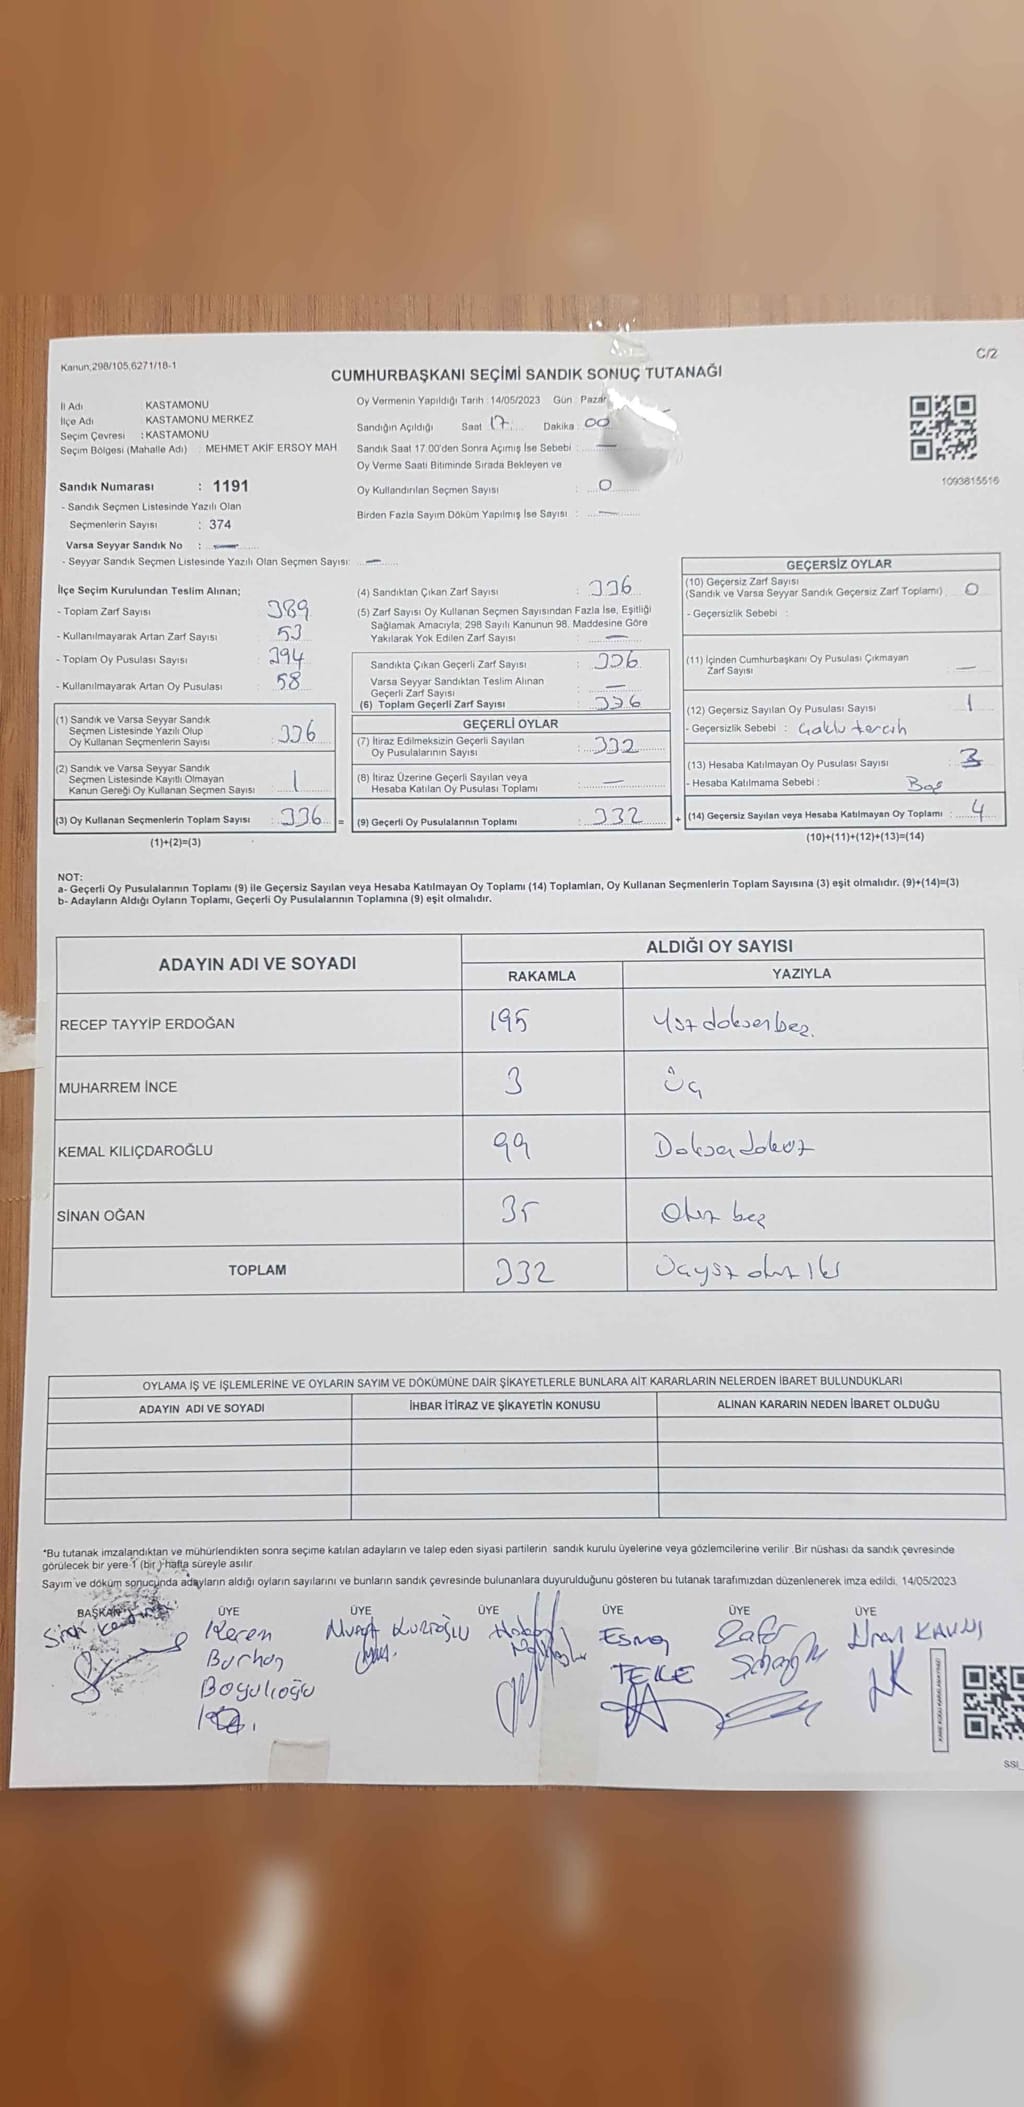 Kanun;298/105,6271/18-1
C/2
CUMHURBAŞKANI SEÇİMİ SANDIK SONUÇ TUTANAĞI
İl Adı : KASTAMONU
İlçe Adı : KASTAMONU MERKEZ
Seçim Çevresi : KASTAMONU
Seçim Bölgesi (Mahalle Adı) : MEHMET AKİF ERSOY MAH
Sandık Numarası : 1191
- Sandık Seçmen Listesinde Yazılı Olan
Seçmenlerin Sayısı : 374
Varsa Seyyar Sandık No : —
- Seyyar Sandık Seçmen Listesinde Yazılı Olan Seçmen Sayısı: —
Oy Vermenin Yapıldığı Tarih : 14/05/2023 Gün : Pazar
Sandığın Açıldığı Saat 17 Dakika : 00
Sandık Saat 17.00'den Sonra Açımış İse Sebebi : —
Oy Verme Saati Bitiminde Sırada Bekleyen ve
Oy Kullandırılan Seçmen Sayısı : 0
Birden Fazla Sayım Döküm Yapılmış İse Sayısı : —
1093815516
İlçe Seçim Kurulundan Teslim Alınan;
- Toplam Zarf Sayısı : 389
- Kullanılmayarak Artan Zarf Sayısı : 53
- Toplam Oy Pusulası Sayısı : 394
- Kullanılmayarak Artan Oy Pusulası : 58
(1) Sandık ve Varsa Seyyar Sandık
Seçmen Listesinde Yazılı Olup
Oy Kullanan Seçmenlerin Sayısı : 336
(2) Sandık ve Varsa Seyyar Sandık
Seçmen Listesinde Kayıtlı Olmayan
Kanun Gereği Oy Kullanan Seçmen Sayısı : 1
(3) Oy Kullanan Seçmenlerin Toplam Sayısı : 336 =
(1)+(2)=(3)
(4) Sandıktan Çıkan Zarf Sayısı : 336
(5) Zarf Sayısı Oy Kullanan Seçmen Sayısından Fazla İse, Eşitliği
Sağlamak Amacıyla; 298 Sayılı Kanunun 98. Maddesine Göre
Yakılarak Yok Edilen Zarf Sayısı : —
Sandıkta Çıkan Geçerli Zarf Sayısı : 336
Varsa Seyyar Sandıktan Teslim Alınan
Geçerli Zarf Sayısı : —
(6) Toplam Geçerli Zarf Sayısı : 336
GEÇERLİ OYLAR
(7) İtiraz Edilmeksizin Geçerli Sayılan
Oy Pusulalarının Sayısı : 332
(8) İtiraz Üzerine Geçerli Sayılan veya
Hesaba Katılan Oy Pusulası Toplamı : —
(9) Geçerli Oy Pusulalarının Toplamı : 332 +
GEÇERSİZ OYLAR
(10) Geçersiz Zarf Sayısı
(Sandık ve Varsa Seyyar Sandık Geçersiz Zarf Toplamı) : 0
- Geçersizlik Sebebi :
(11) İçinden Cumhurbaşkanı Oy Pusulası Çıkmayan
Zarf Sayısı : —
(12) Geçersiz Sayılan Oy Pusulası Sayısı : 1
- Geçersizlik Sebebi : Çoklu tercih
(13) Hesaba Katılmayan Oy Pusulası Sayısı : 3
- Hesaba Katılmama Sebebi : Boş
(14) Geçersiz Sayılan veya Hesaba Katılmayan Oy Toplamı : 4
(10)+(11)+(12)+(13)=(14)
NOT:
a- Geçerli Oy Pusulalarının Toplamı (9) ile Geçersiz Sayılan veya Hesaba Katılmayan Oy Toplamı (14) Toplamları, Oy Kullanan Seçmenlerin Toplam Sayısına (3) eşit olmalıdır. (9)+(14)=(3)
b- Adayların Aldığı Oyların Toplamı, Geçerli Oy Pusulalarının Toplamına (9) eşit olmalıdır.
ADAYIN ADI VE SOYADI
ALDIĞI OY SAYISI
RAKAMLA YAZIYLA
RECEP TAYYİP ERDOĞAN 195 Yüzdoksanbeş.
MUHARREM İNCE 3 Üç
KEMAL KILIÇDAROĞLU 99 Doksandokuz
SİNAN OĞAN 35 Otuz beş
TOPLAM 332 Üçyüz otuz iki
OYLAMA İŞ VE İŞLEMLERİNE VE OYLARIN SAYIM VE DÖKÜMÜNE DAİR ŞİKAYETLERLE BUNLARA AİT KARARLARIN NELERDEN İBARET BULUNDUKLARI
ADAYIN ADI VE SOYADI
İHBAR İTİRAZ VE ŞİKAYETİN KONUSU
ALINAN KARARIN NEDEN İBARET OLDUĞU
*Bu tutanak imzalandıktan ve mühürlendikten sonra seçime katılan adayların ve talep eden siyasi partilerin sandık kurulu üyelerine veya gözlemcilerine verilir. Bir nüshası da sandık çevresinde
görülecek bir yere 1 (bir) hafta süreyle asılır
Sayım ve döküm sonucunda adayların aldığı oyların sayılarını ve bunların sandık çevresinde bulunanlara duyurulduğunu gösteren bu tutanak tarafımızdan düzenlenerek imza edildi. 14/05/2023
BAŞKAN ÜYE ÜYE ÜYE ÜYE ÜYE ÜYE
Kerem
Burhan
Esma
TEKE
KAVUŞ
SSI_